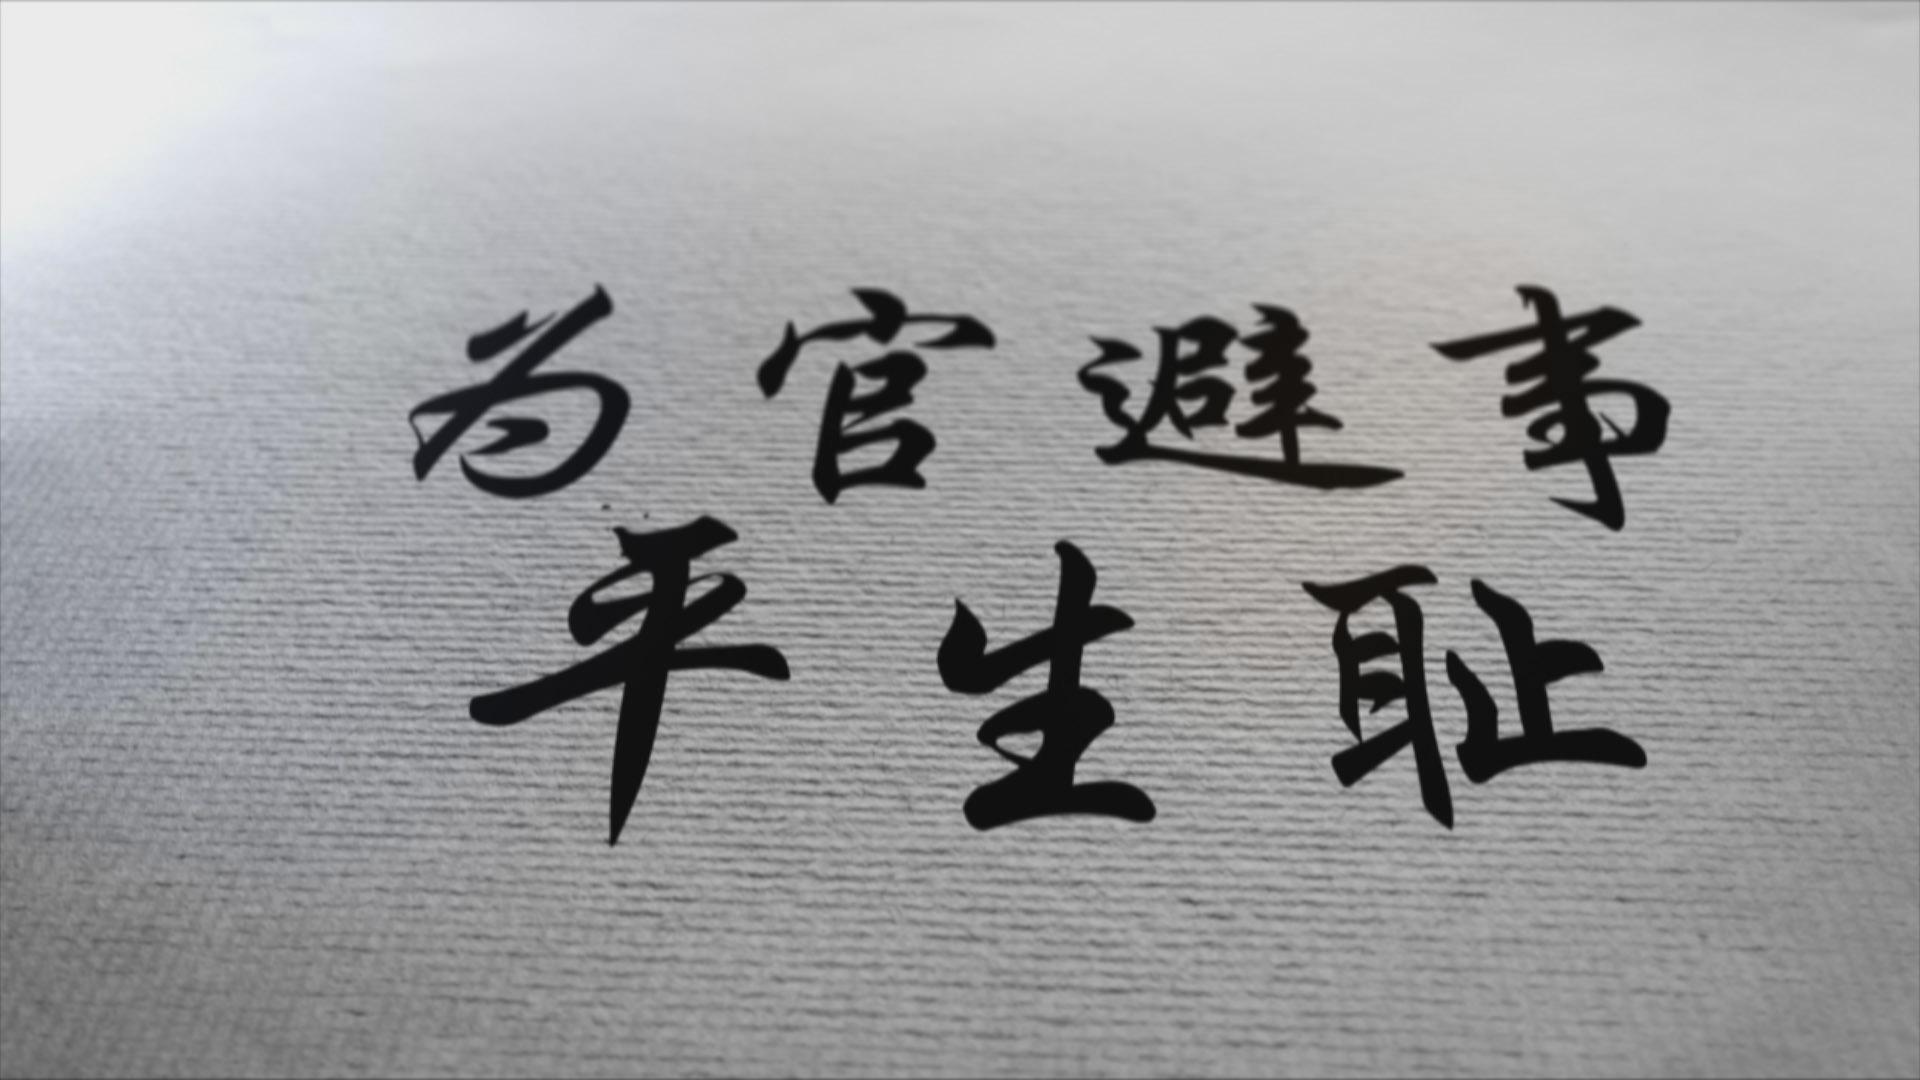 为官避事
平生耻